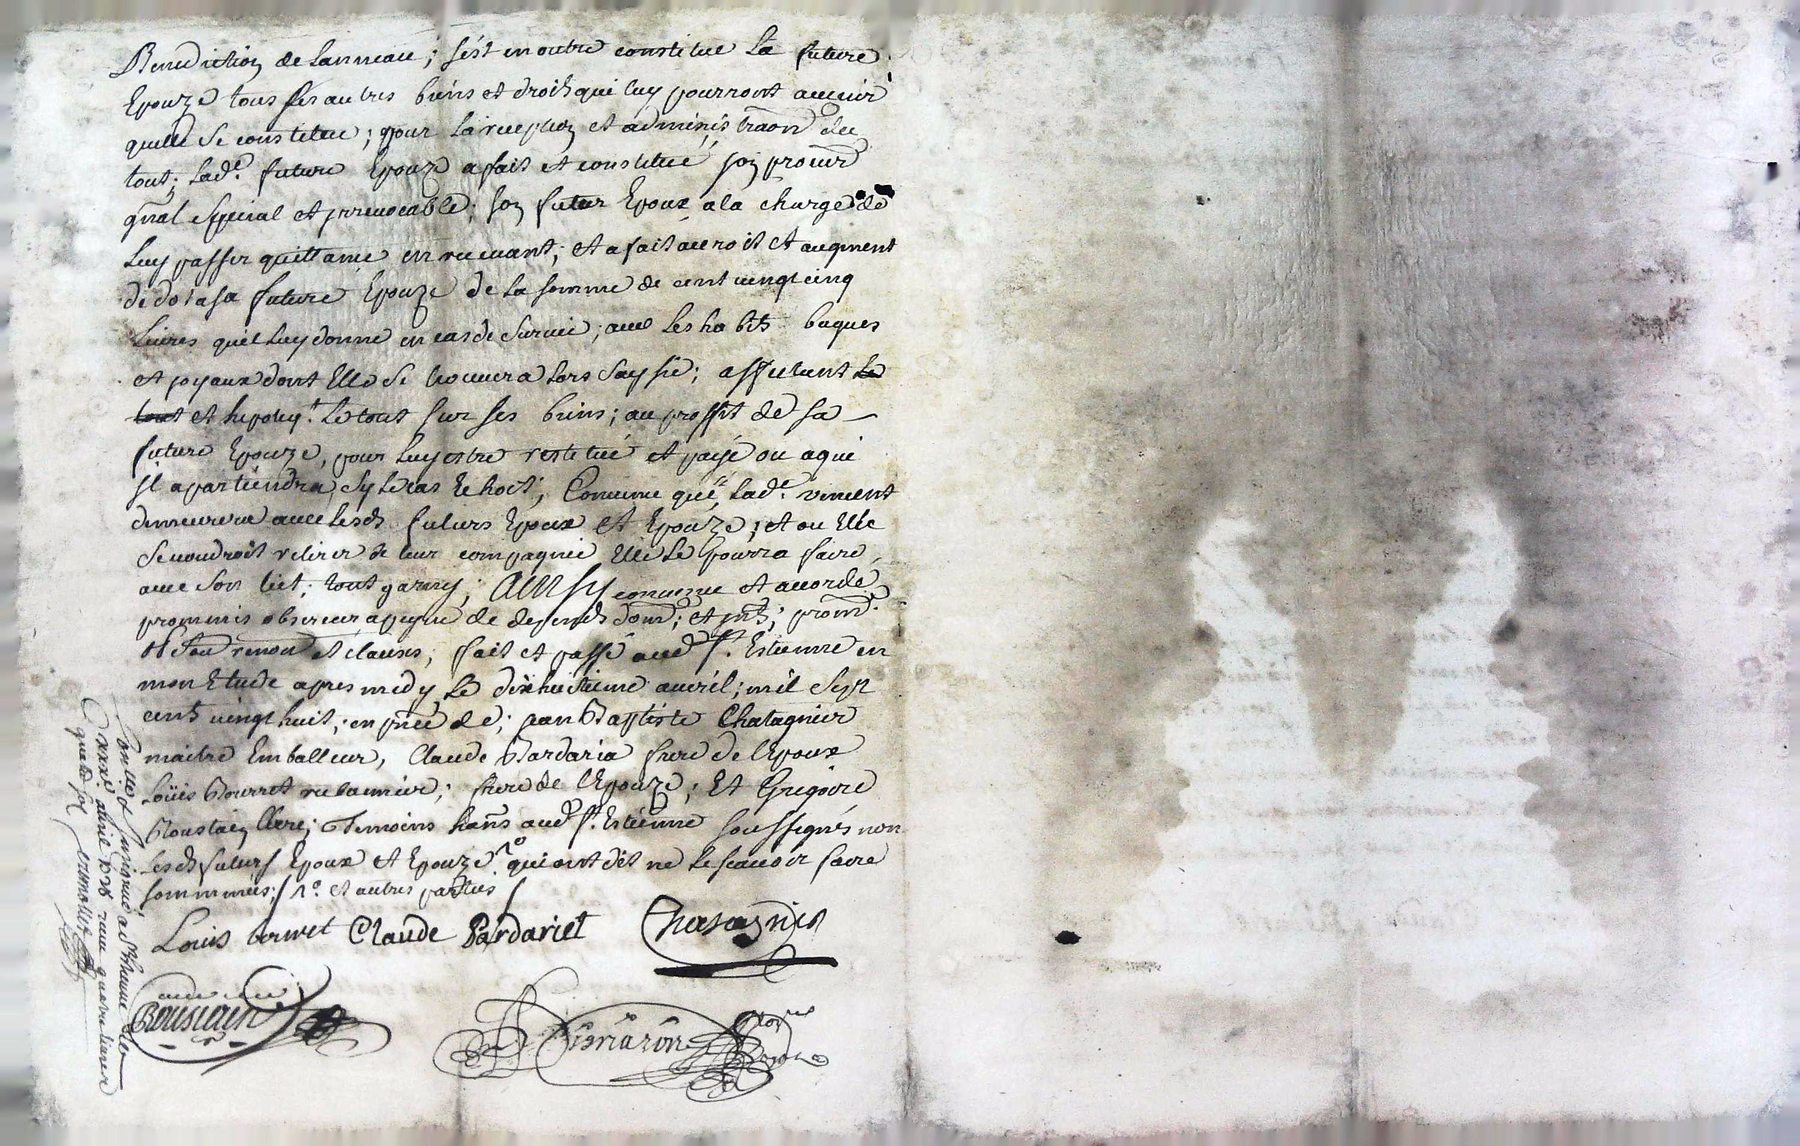 Benediction de Lanneau; sést en outre constitué La future
Epouze tous ses autres biens et droits qui luy pourront auenir
quelle se constitue; pour La reception et administraon du
tout; Lade. future Epouze a fait et constitué, son procur
gnal espécial et irreuocable; son futur Epoux a la charge de
Luy passer quittance en receuant; et a fait acroit et augment
de dot a sa future Epouze de la somme de cent uingt cinq
Liures quil Luy donne en cas de suruie; auec les habits bagues
et joyaux dont Elle se trouuera Lors saysie; assurant Le
tout et hipoteqt. Le tout sur ses biens; au proffit de sa
future Epouze, pour Luy estre restitué et payé ou a qui
jl apartiendra, sy Le cas Echoit; Conuenu que Lade. vincent
demeurera auec Lesds futurs Epoux et Epouze; et ou Elle
se uoudroit retirer de leur compagnie Elle Le pourra faire
auec son Lict; tout garny; Ainsy conuenu et accordé
prommis obseruer a peyne de despends dom; et jnts; prom
et clauses; fait et passé aud St. Estienne en
mon Etude apres midy Le dixhuitieme auril; mil sept
cents uingt huit; en pnce de; jean Baptiste Chatagnier
maitre Emballeur, Claude Pardaria frere de l'Epoux
Loüis Bourret rubannier; frere de l'Epouze; Et Grégoire
Roustain Clerc; Temoins hants aud St. Estienne soussignés non
Lesds futurs Epoux et Epouze qui ont dit ne le scauoir faire
sommés; et autres parties
Louis Claude Pardariet Chatagnier
Roustain
auril 1728